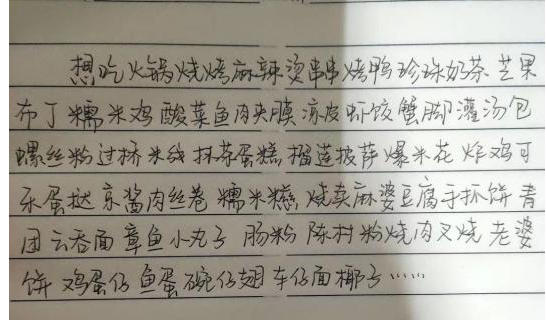 想吃火锅烧烤麻辣烫串串烤鸭珍珠奶茶芒果
布丁糯米鸡酸菜鱼肉夹膜凉皮虾饺蟹脚灌汤包
螺丝粉过桥米线抹茶蛋糕榴莲披萨爆米花炸鸡可
乐蛋挞京酱肉丝卷糯米糍烧卖麻婆豆腐手抓饼青
团云吞面章鱼小丸子肠粉陈村粉烧肉叉烧老婆
饼鸡蛋仔鱼蛋碗仔翅车仔面椰子……